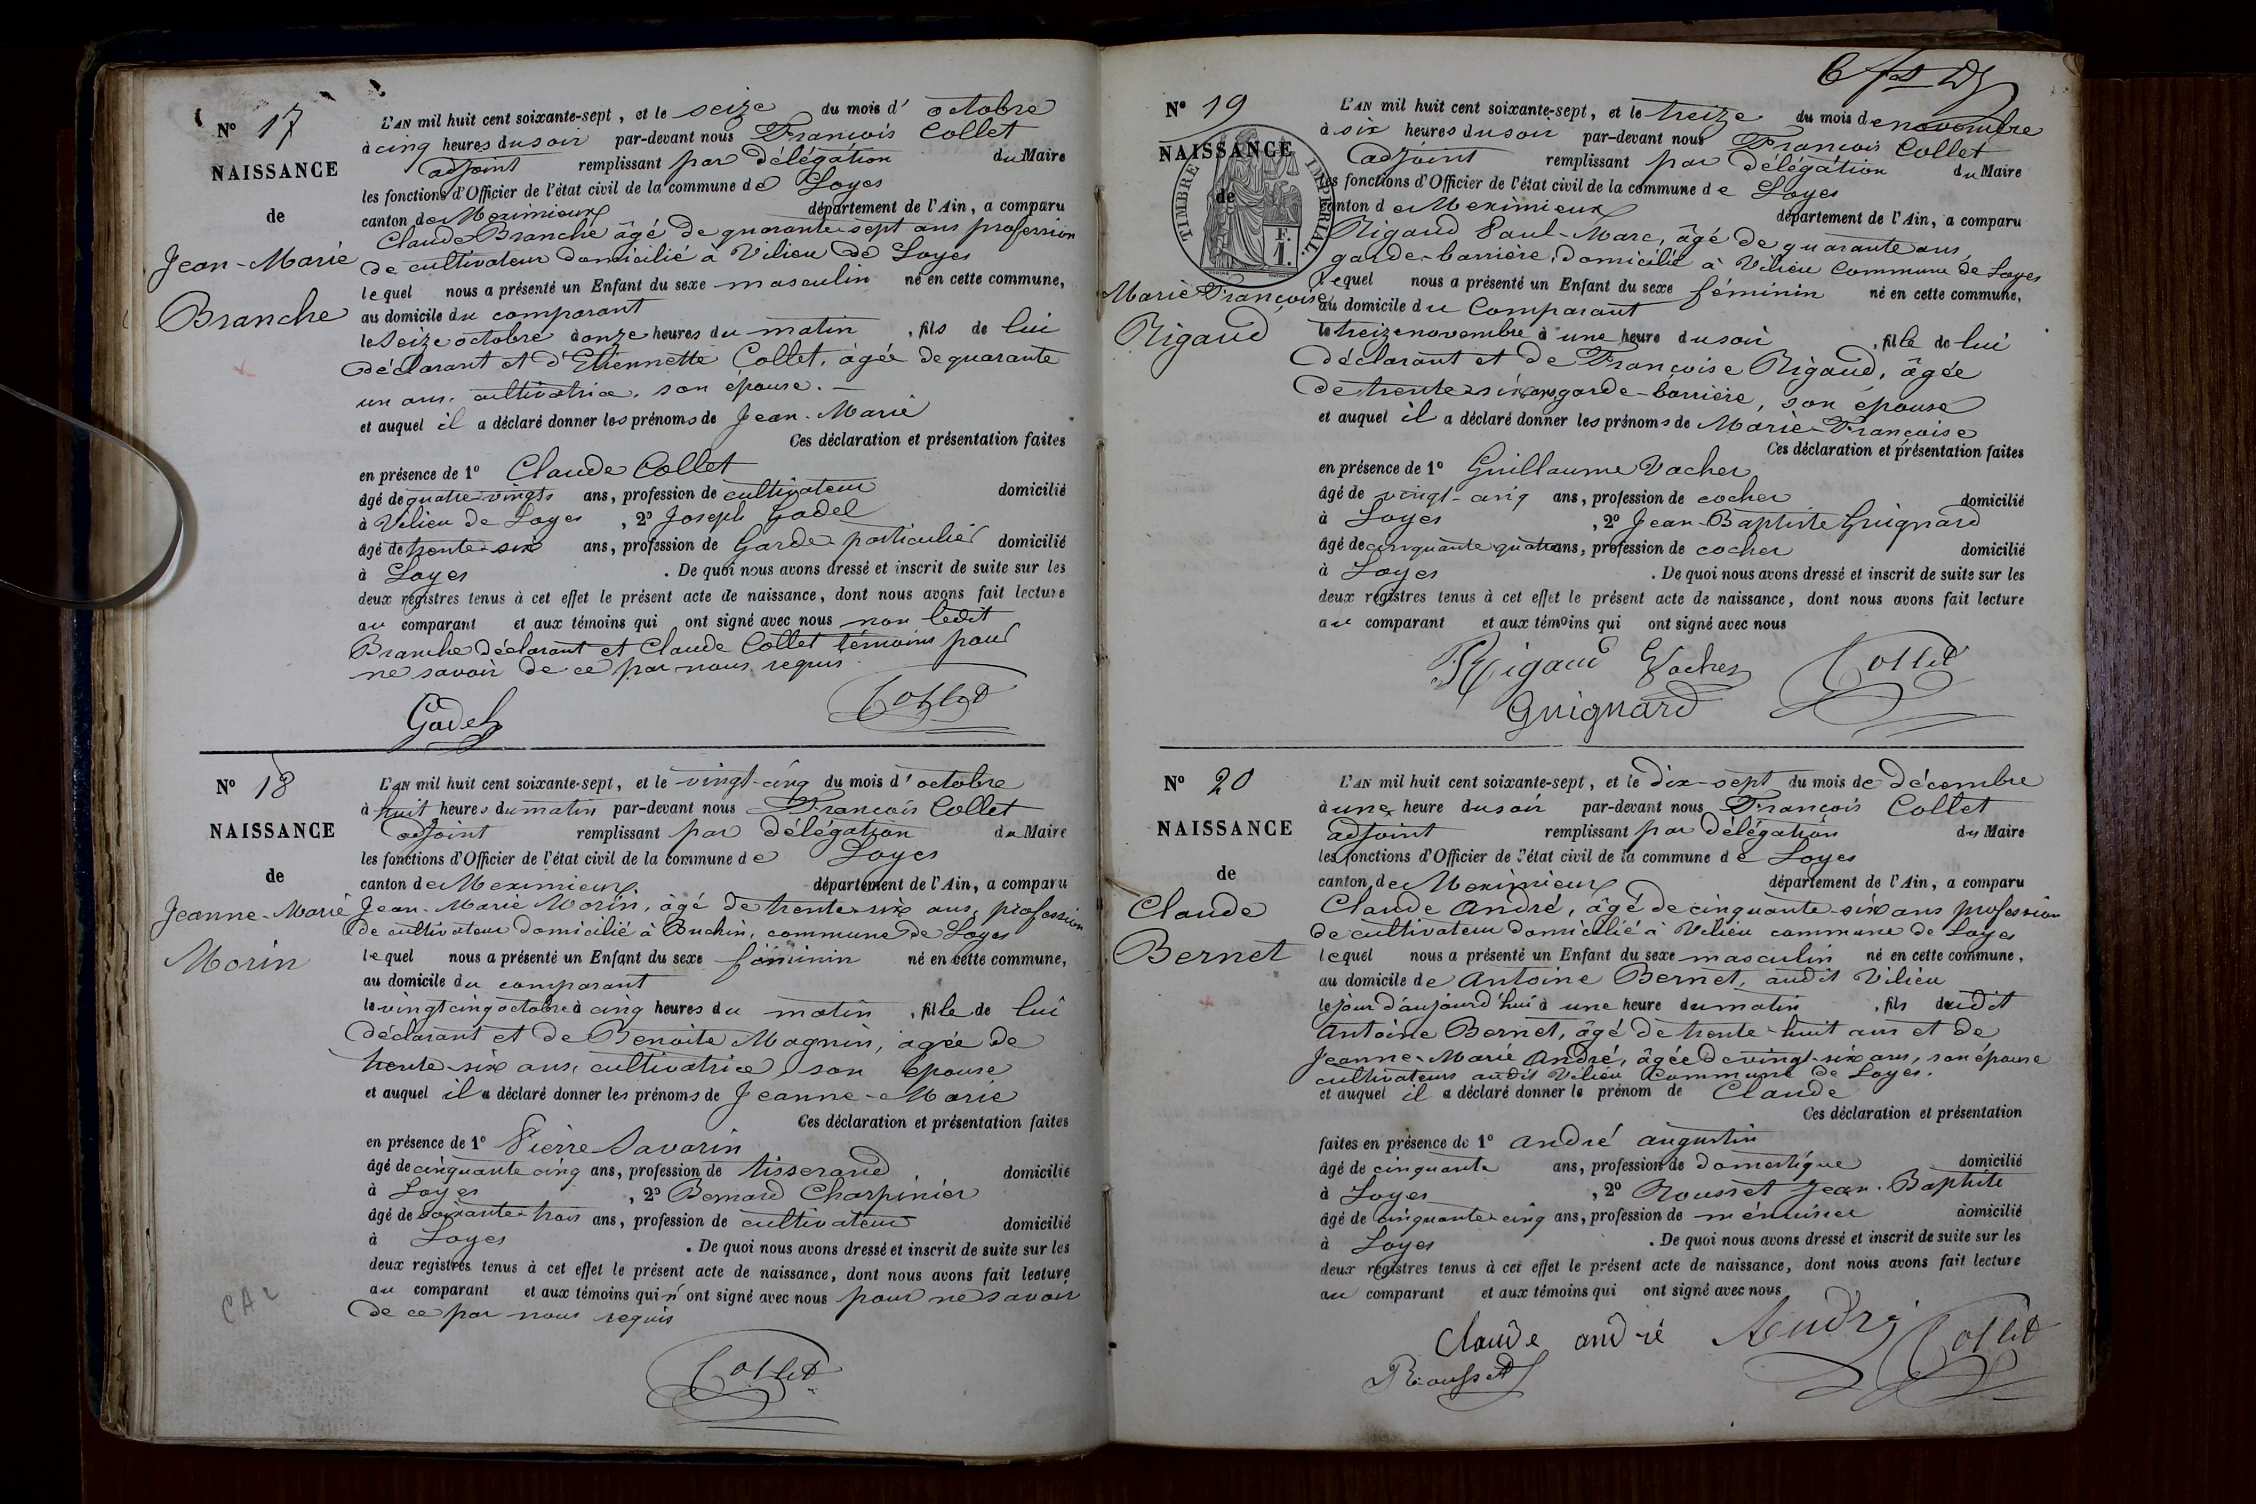 N° 17
NAISSANCE
de
Jean-Marie
Branche
L'AN mil huit cent soixante-sept, et le seize du mois d' octobre
à cinq heures du soir par-devant nous François Collet
adjoint remplissant par délégation du Maire
les fonctions d'Officier de l'état civil de la commune de Loyes
canton de Meximieux département de l'Ain, a comparu
Claude Branche âgé de quarante-sept ans profession
de cultivateur domicilié à Vilieu de Loyes
lequel nous a présenté un Enfant du sexe masculin né en cette commune,
au domicile du comparant
le seize octobre à onze heures du matin, fils de lui
déclarant et d'Etiennette Collet, âgée de quarante
un ans, cultivatrice, son épouse. —
et auquel il a déclaré donner les prénoms de Jean-Marie
Ces déclaration et présentation faites
en présence de 1° Claude Collet
âgé de quatre-vingts ans, profession de cultivateur domicilié
à Vilieu de Loyes, 2° Joseph Godel
âgé de trente-six ans, profession de Garde-particulier domicilié
à Loyes. De quoi nous avons dressé et inscrit de suite sur les
deux registres tenus à cet effet le présent acte de naissance, dont nous avons fait lecture
au comparant et aux témoins qui ont signé avec nous non ledit
Branche déclarant et Claude Collet témoins pour
ne savoir de ce par nous requis.
Godel Collet
N° 18
NAISSANCE
de
Jeanne-Marie
Morin
L'AN mil huit cent soixante-sept, et le vingt-cinq du mois d' octobre
à huit heures du matin par-devant nous François Collet
adjoint remplissant par délégation du Maire
les fonctions d'Officier de l'état civil de la commune de Loyes
canton de Meximieux département de l'Ain, a comparu
Jean-Marie Morin, âgé de trente-six ans, profession
de cultivateur domicilié à Buchin, commune de Loyes
lequel nous a présenté un Enfant du sexe féminin né en cette commune,
au domicile du comparant
le vingt cinq octobre à cinq heures du matin, fille de lui
déclarant et de Benoite Magnin, âgée de
trente-six ans, cultivatrice, son épouse
et auquel il a déclaré donner les prénoms de Jeanne-Marie
Ces déclaration et présentation faites
en présence de 1° Pierre Savarin
âgé de cinquante cinq ans, profession de tisserand domicilié
à Loyes, 2° Bernard Charpinier
âgé de soixante-trois ans, profession de cultivateur domicilié
à Loyes. De quoi nous avons dressé et inscrit de suite sur les
deux registres tenus à cet effet le présent acte de naissance, dont nous avons fait lecture
au comparant et aux témoins qui n'ont signé avec nous pour ne savoir
de ce par nous requis
Collet
CA2
N° 19
NAISSANCE
de
TIMBRE IMPERIAL.
F.
1.
Marie Françoise
Rigaud
L'AN mil huit cent soixante-sept, et le treize du mois de novembre
à six heures du soir par-devant nous François Collet
adjoint remplissant par délégation du Maire
les fonctions d'Officier de l'état civil de la commune de Loyes
canton de Meximieux département de l'Ain, a comparu
Rigaud Paul-Marc, âgé de quarante ans,
garde-barrière, domicilié à Vilieu commune de Loyes
lequel nous a présenté un Enfant du sexe féminin né en cette commune,
au domicile du Comparant
le treize novembre à une heure du soir, fille de lui
déclarant et de Françoise Rigaud, âgée
de trente-six ans garde-barrière, son épouse
et auquel il a déclaré donner les prénoms de Marie-Françoise
Ces déclaration et présentation faites
en présence de 1° Guillaume Vacher
âgé de vingt-cinq ans, profession de cocher domicilié
à Loyes, 2° Jean-Baptiste Guignard
âgé de cinquante quatre ans, profession de cocher domicilié
à Loyes. De quoi nous avons dressé et inscrit de suite sur les
deux registres tenus à cet effet le présent acte de naissance, dont nous avons fait lecture
au comparant et aux témoins qui ont signé avec nous
Rigaud Vacher Collet
Guignard
N° 20
NAISSANCE
de
Claude
Bernet
L'AN mil huit cent soixante-sept, et le dix-sept du mois de décembre
à une heure du soir par-devant nous François Collet
adjoint remplissant par délégation du Maire
les fonctions d'Officier de l'état civil de la commune de Loyes
canton de Meximieux département de l'Ain, a comparu
Claude André, âgé de cinquante-six ans profession
de cultivateur domicilié à Vilieu commune de Loyes
lequel nous a présenté un Enfant du sexe masculin né en cette commune,
au domicile de Antoine Bernet, audit Vilieu
le jour d'aujourd'hui à une heure du matin, fils dudit
Antoine Bernet, âgé de trente-huit ans et de
Jeanne-Marie André, âgée de vingt-six ans, son épouse
cultivateurs audit Vilieu Commune de Loyes.
et auquel il a déclaré donner le prénom de Claude
Ces déclaration et présentation
faites en présence de 1° André Augustin
âgé de cinquante ans, profession de domestique domicilié
à Loyes, 2° Rousset Jean-Baptiste
âgé de cinquante-cinq ans, profession de menuisier domicilié
à Loyes. De quoi nous avons dressé et inscrit de suite sur les
deux registres tenus à cet effet le présent acte de naissance, dont nous avons fait lecture
au comparant et aux témoins qui ont signé avec nous
Claude andré André Collet
Rousset